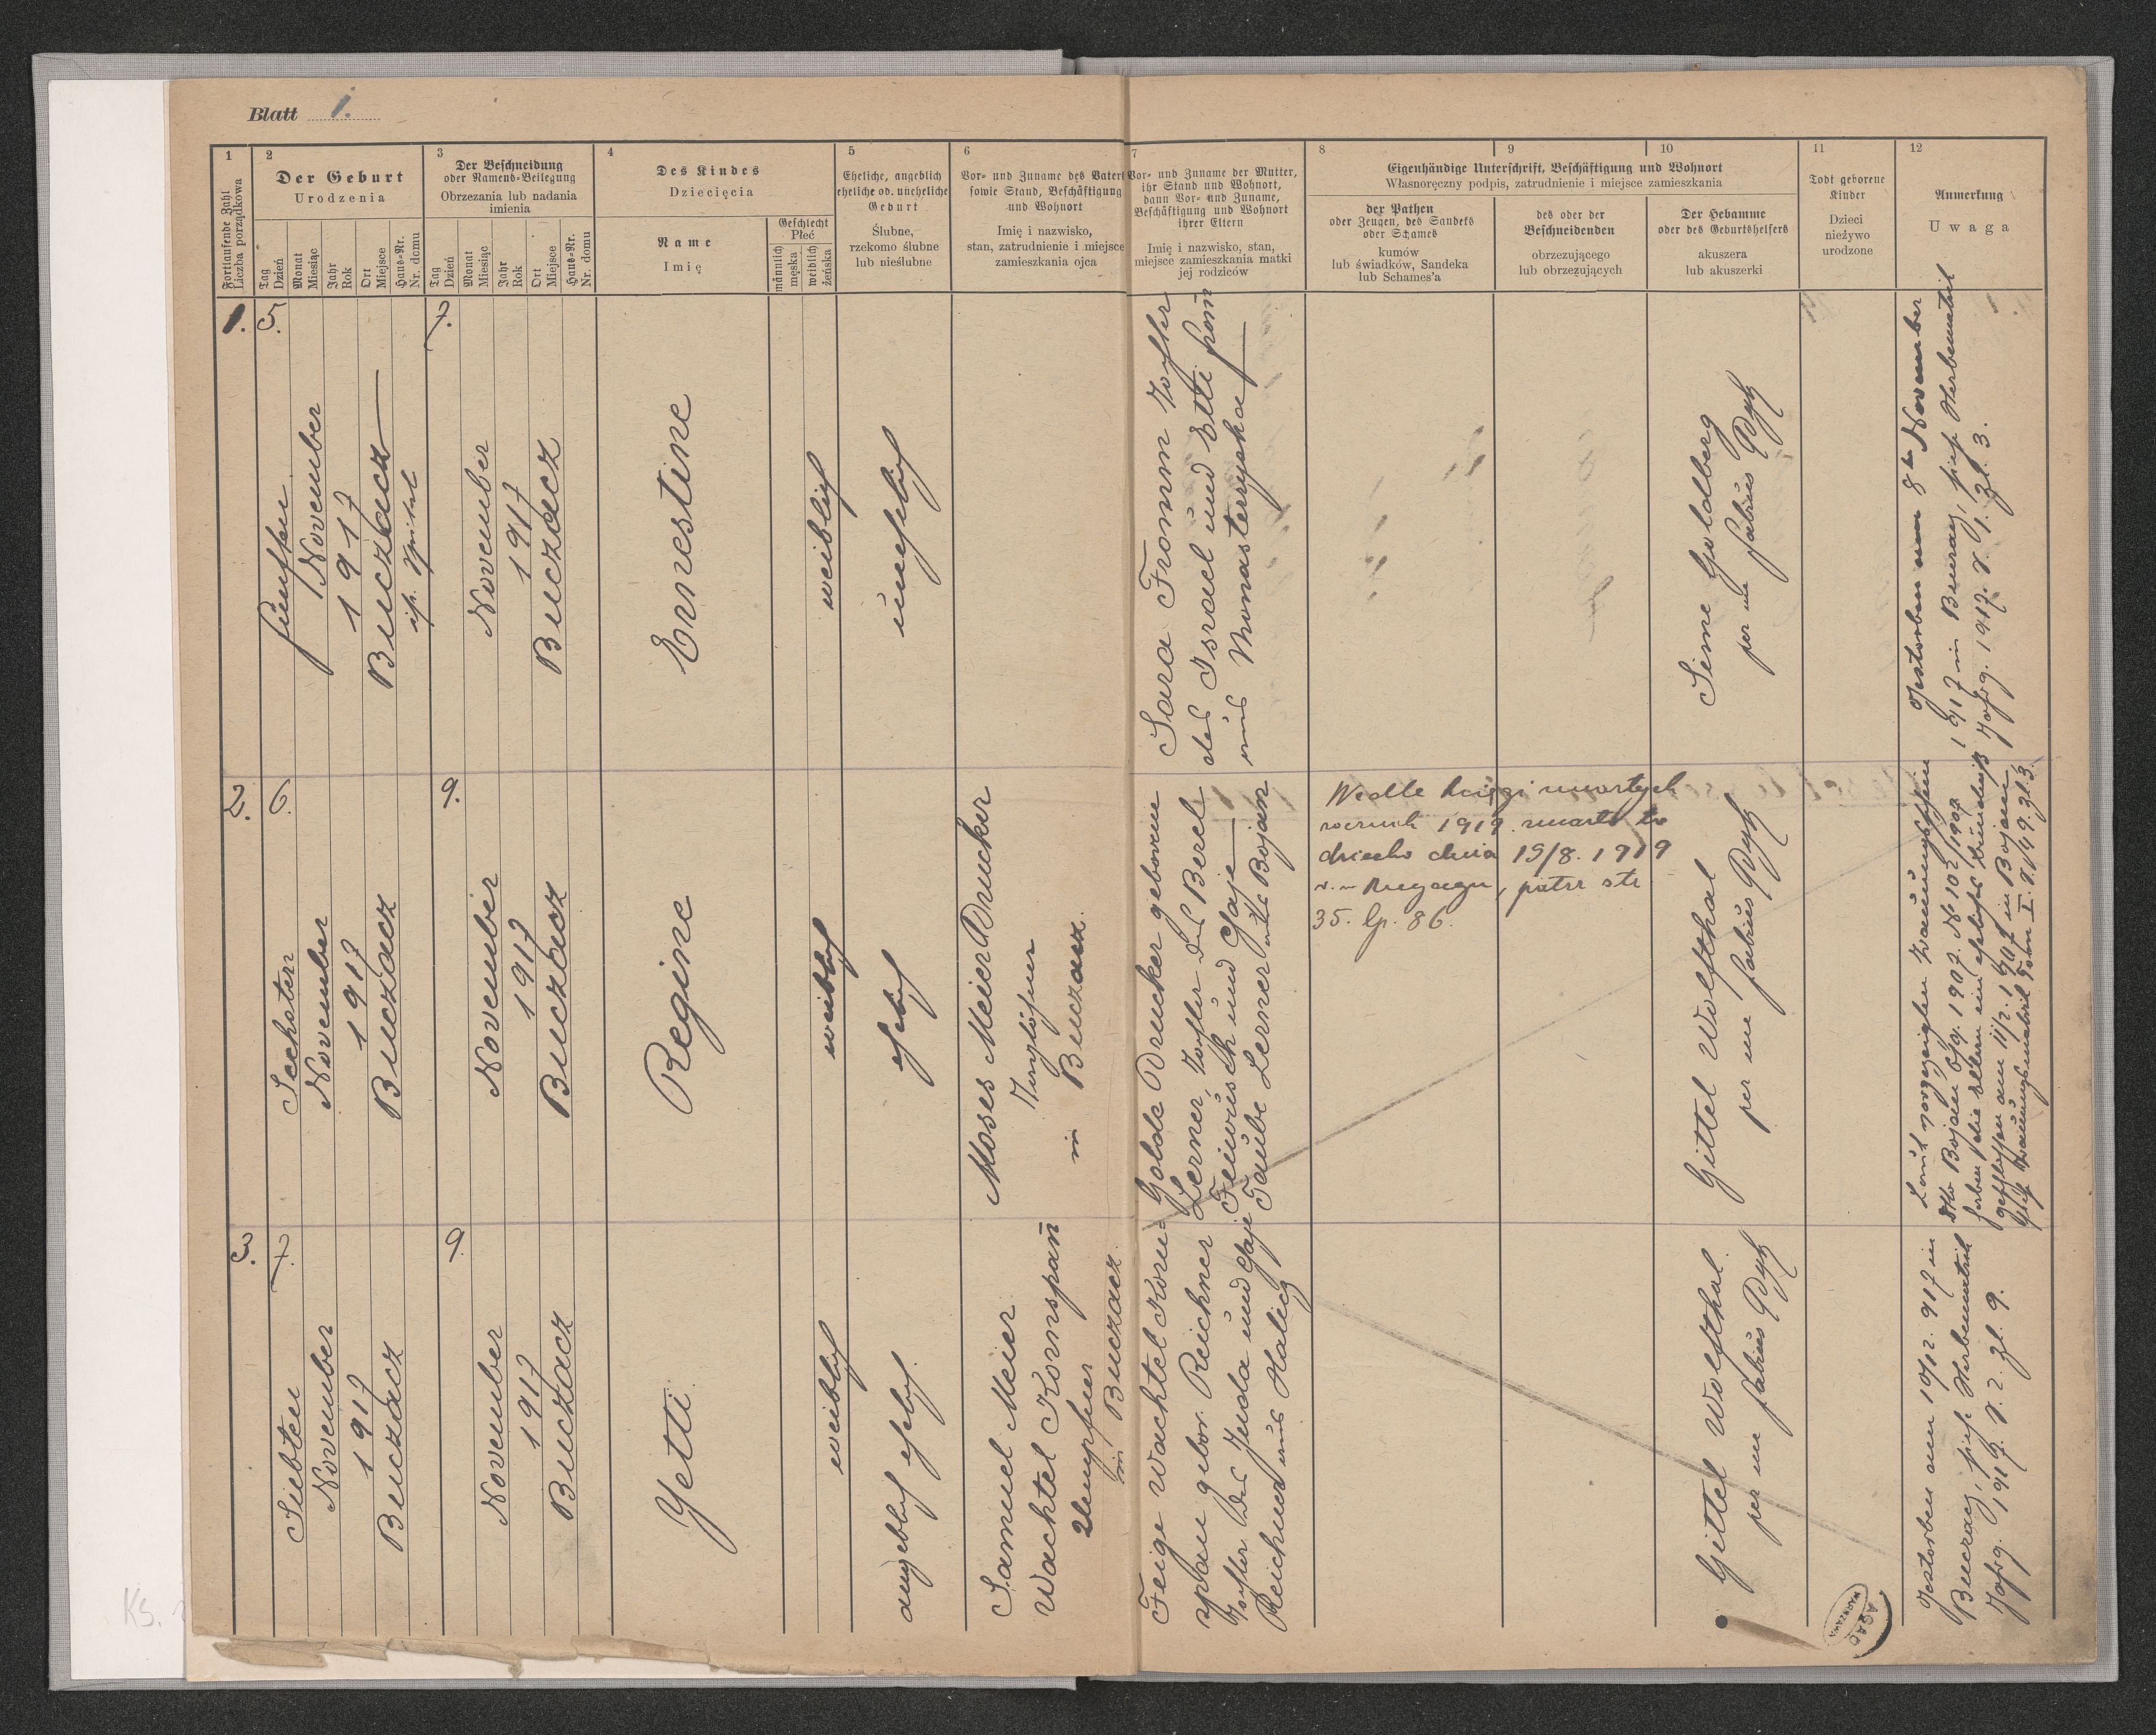 Blatt 1.
1
Fortlaufende Zahl
Liczba porządkowa
2
Der Geburt
Urodzenia
Tag
Dzień
Monat
Miesiąc
Jahr
Rok
Ort
Miejsce
Haus-Nr.
Nr. domu
3
Der Beschneidung
oder Namens-Beilegung
Obrzezania lub nadania
imienia
Tag
Dzień
Monat
Miesiąc
Jahr
Rok
Ort
Miejsce
Haus-Nr.
Nr. domu
4
Des Kindes
Dziecięcia
Name
Imię
Geschlecht
Płeć
männlich
męska
weiblich
żeńska
5
Eheliche, angeblich
eheliche od. uneheliche
Geburt
Ślubne,
rzekomo ślubne
lub nieślubne
6
Vor- und Zuname des Vaters
sowie Stand, Beschäftigung
und Wohnort
Imię i nazwisko,
stan, zatrudnienie i miejsce
zamieszkania ojca
7
Vor- und Zuname der Mutter,
ihr Stand und Wohnort,
dann Vor- und Zuname,
Beschäftigung und Wohnort
ihrer Eltern
Imię i nazwisko, stan,
miejsce zamieszkania matki
jej rodziców
8
9
10
Eigenhändige Unterschrift, Beschäftigung und Wohnort
Własnoręczny podpis, zatrudnienie i miejsce zamieszkania
der Pathen
oder Zeugen, des Sandeks
oder Schames
kumów
lub świadków, Sandeka
lub Schames'a
des oder der
Beschneidenden
obrzezującego
lub obrzezujących
Der Hebamme
oder des Geburtshelfers
akuszera
lub akuszerki
11
Todt geborene
Kinder
Dzieci
nieżywo
urodzone
12
Anmerkung
Uwaga
1.
5.
fünften
November
1917
Buczacz
isr. Spital
7.
November
1917
Buczacz
Ernestine
weiblich
unehelich
Sara Fromm Tochter
des Israel und Etti Fromm
aus Monasterzyska
Sime Goldberg
per me Fabius
Gestorben am 8ten November
1917 in Buczacz, sieh Sterbematrik
Jahrg. 1917. S. 1. Zl. 3.
2.
6.
Sechsten
November
1917
Buczacz
9.
November
1917
Buczacz
Regine
weiblich
ehelich
Moses Meier Drucker
in Buczacz.
Golde Drucker geborene
Lerner, Tochter des Berel
Feiwisch und Chaje
Taube Lerner aus Bojan
Wedle księgi umarłych
rocznik 1919. umarło to
dziecko dnia 15/8. 1919
patrz str
35. lp. 86.
Gittel Wolfthal
per me Fabius
Laut vorgezeigten Trauungsschein
dto Bojan 1907. N 102/1907
haben die Eltern ein eheliches Bündniß
geschlossen am 11/2. 1907 in Bojan
3.
7.
Siebten
November
1917
Buczacz
9.
November
1917
Buczacz
Yetti
weiblich
angeblich ehelich.
Samuel Meier
Wachtel Kornspan
in Buczacz.
Feige Wachtel Korn=
span gebor. Reichner
Tochter des Juda und Chaje
Reichner aus Halicz
Gittel Wolfthal
per me Fabius
Gestorben am 10/12. 917 in
Buczacz, sieh Sterbematrik
Jahrg. 1917. S. 2. Zl. 9.
AGAD
WARSZAWA
Ks.